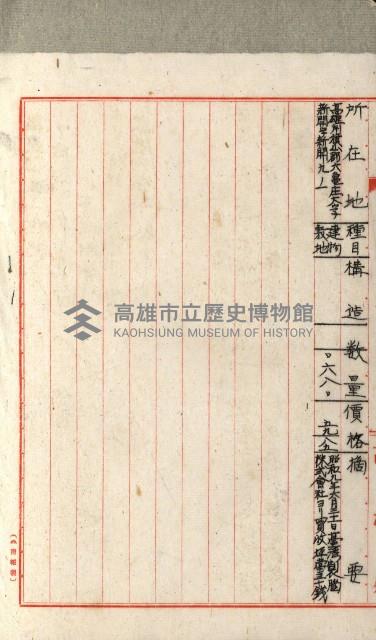 所在地 種目 構造 数量 價格 摘要
高雄州旗山郡六龜庄大字
新開字新開九ノ一
建物
敷地
〇六八〇
五九八五
昭和九年六月三十日臺灣製腦
株式會社ヨリ買收坪當
高雄市立歷史博物館
KAOHSIUNG MUSEUM OF HISTORY